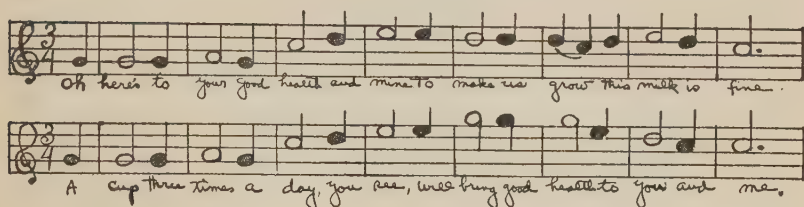 3 4
Oh here's to your good health and mine To make us grow this milk is fine.
3 4
A cup three times a day, you see, will bring good health to you and me.